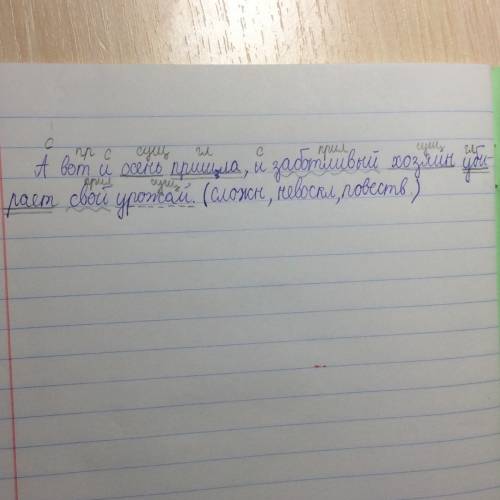 с пр с сущ гл с прил сущ гл
А вот и осень пришла, и заботливый хозяин уби-
прил сущ
рает свой урожай. (сложн, невоскл, повеств.)